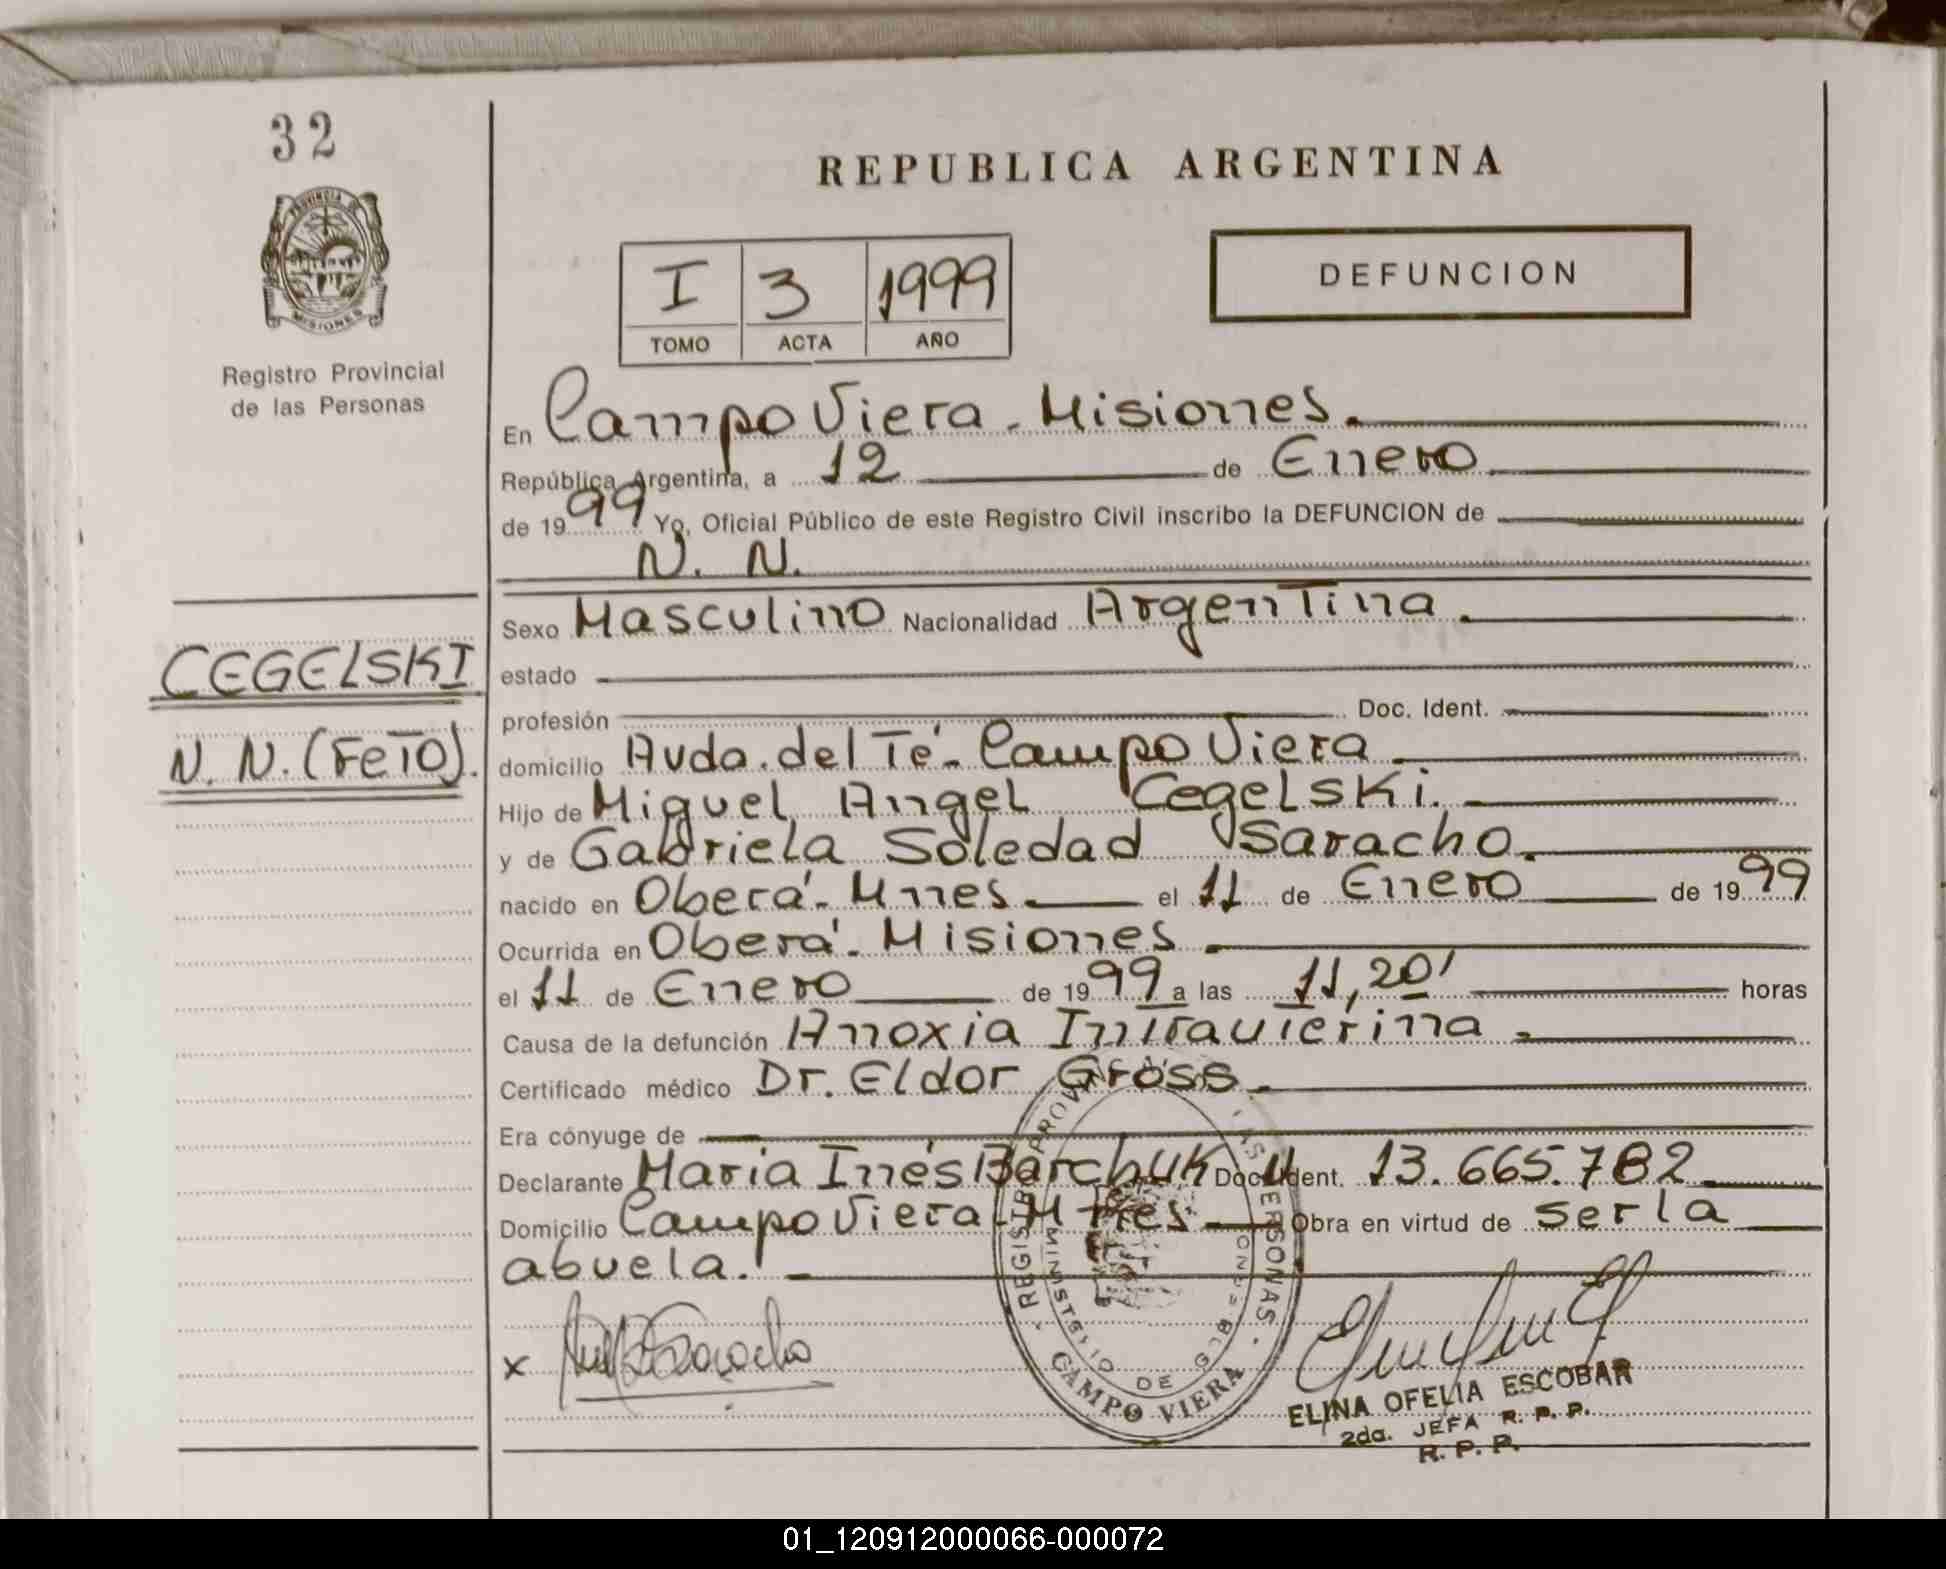 32
PROVINCIA DE
MISIONES
Registro Provincial
de las Personas
CEGELSKI
N. N. (FETO).
REPUBLICA ARGENTINA
I 3 1999
TOMO ACTA AÑO
DEFUNCION
En Campo Viera - Misiones.
República Argentina, a 12 de Enero
de 1999 Yo, Oficial Público de este Registro Civil inscribo la DEFUNCION de
N. N.
Sexo Masculino Nacionalidad Argentina.
estado
profesión Doc. Ident.
domicilio Avda. del Té - Campo Viera
Hijo de Miguel Angel Cegelski.
y de Gabriela Soledad Saracho.
nacido en Oberá - Mnes el 11 de Enero de 1999
Ocurrida en Oberá - Misiones
el 11 de Enero de 1999 a las 11,20' horas
Causa de la defunción Anoxia Intrauterina.
Certificado médico Dr. Eldor Gross.
Era cónyuge de
Declarante Maria Inés Barchuk Doc. Ident. 13.665.782
Domicilio Campo Viera - Mnes Obra en virtud de ser la
abuela.
x
REGISTRO PROV LAS PERSONAS
MINISTERIO DE
CAMPO VIERA
ELINA OFELIA ESCOBAR
2da. JEFA R. P. P.
R. P. P.
01_120912000066-000072